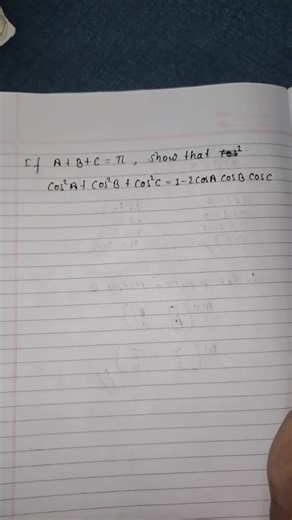 If A+B+C = π, show that
Cos²A + Cos²B + Cos²C = 1-2CosA CosB CosC